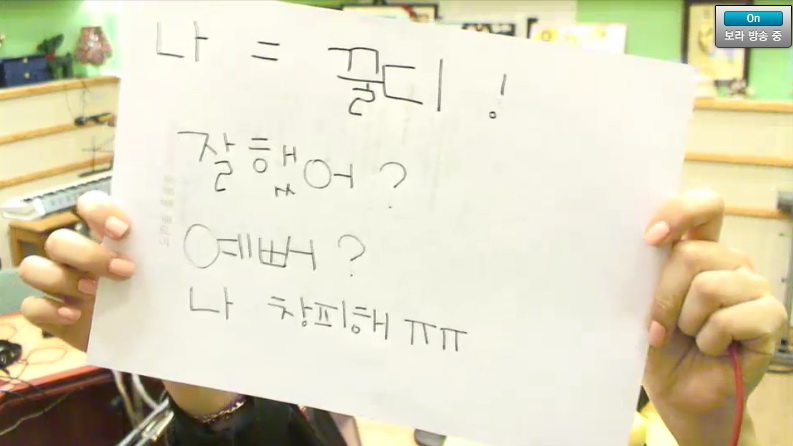 On
보라 방송 중
나 = 꿀디 !
잘했어 ?
예뻐 ?
나 창피해 ㅠㅠ